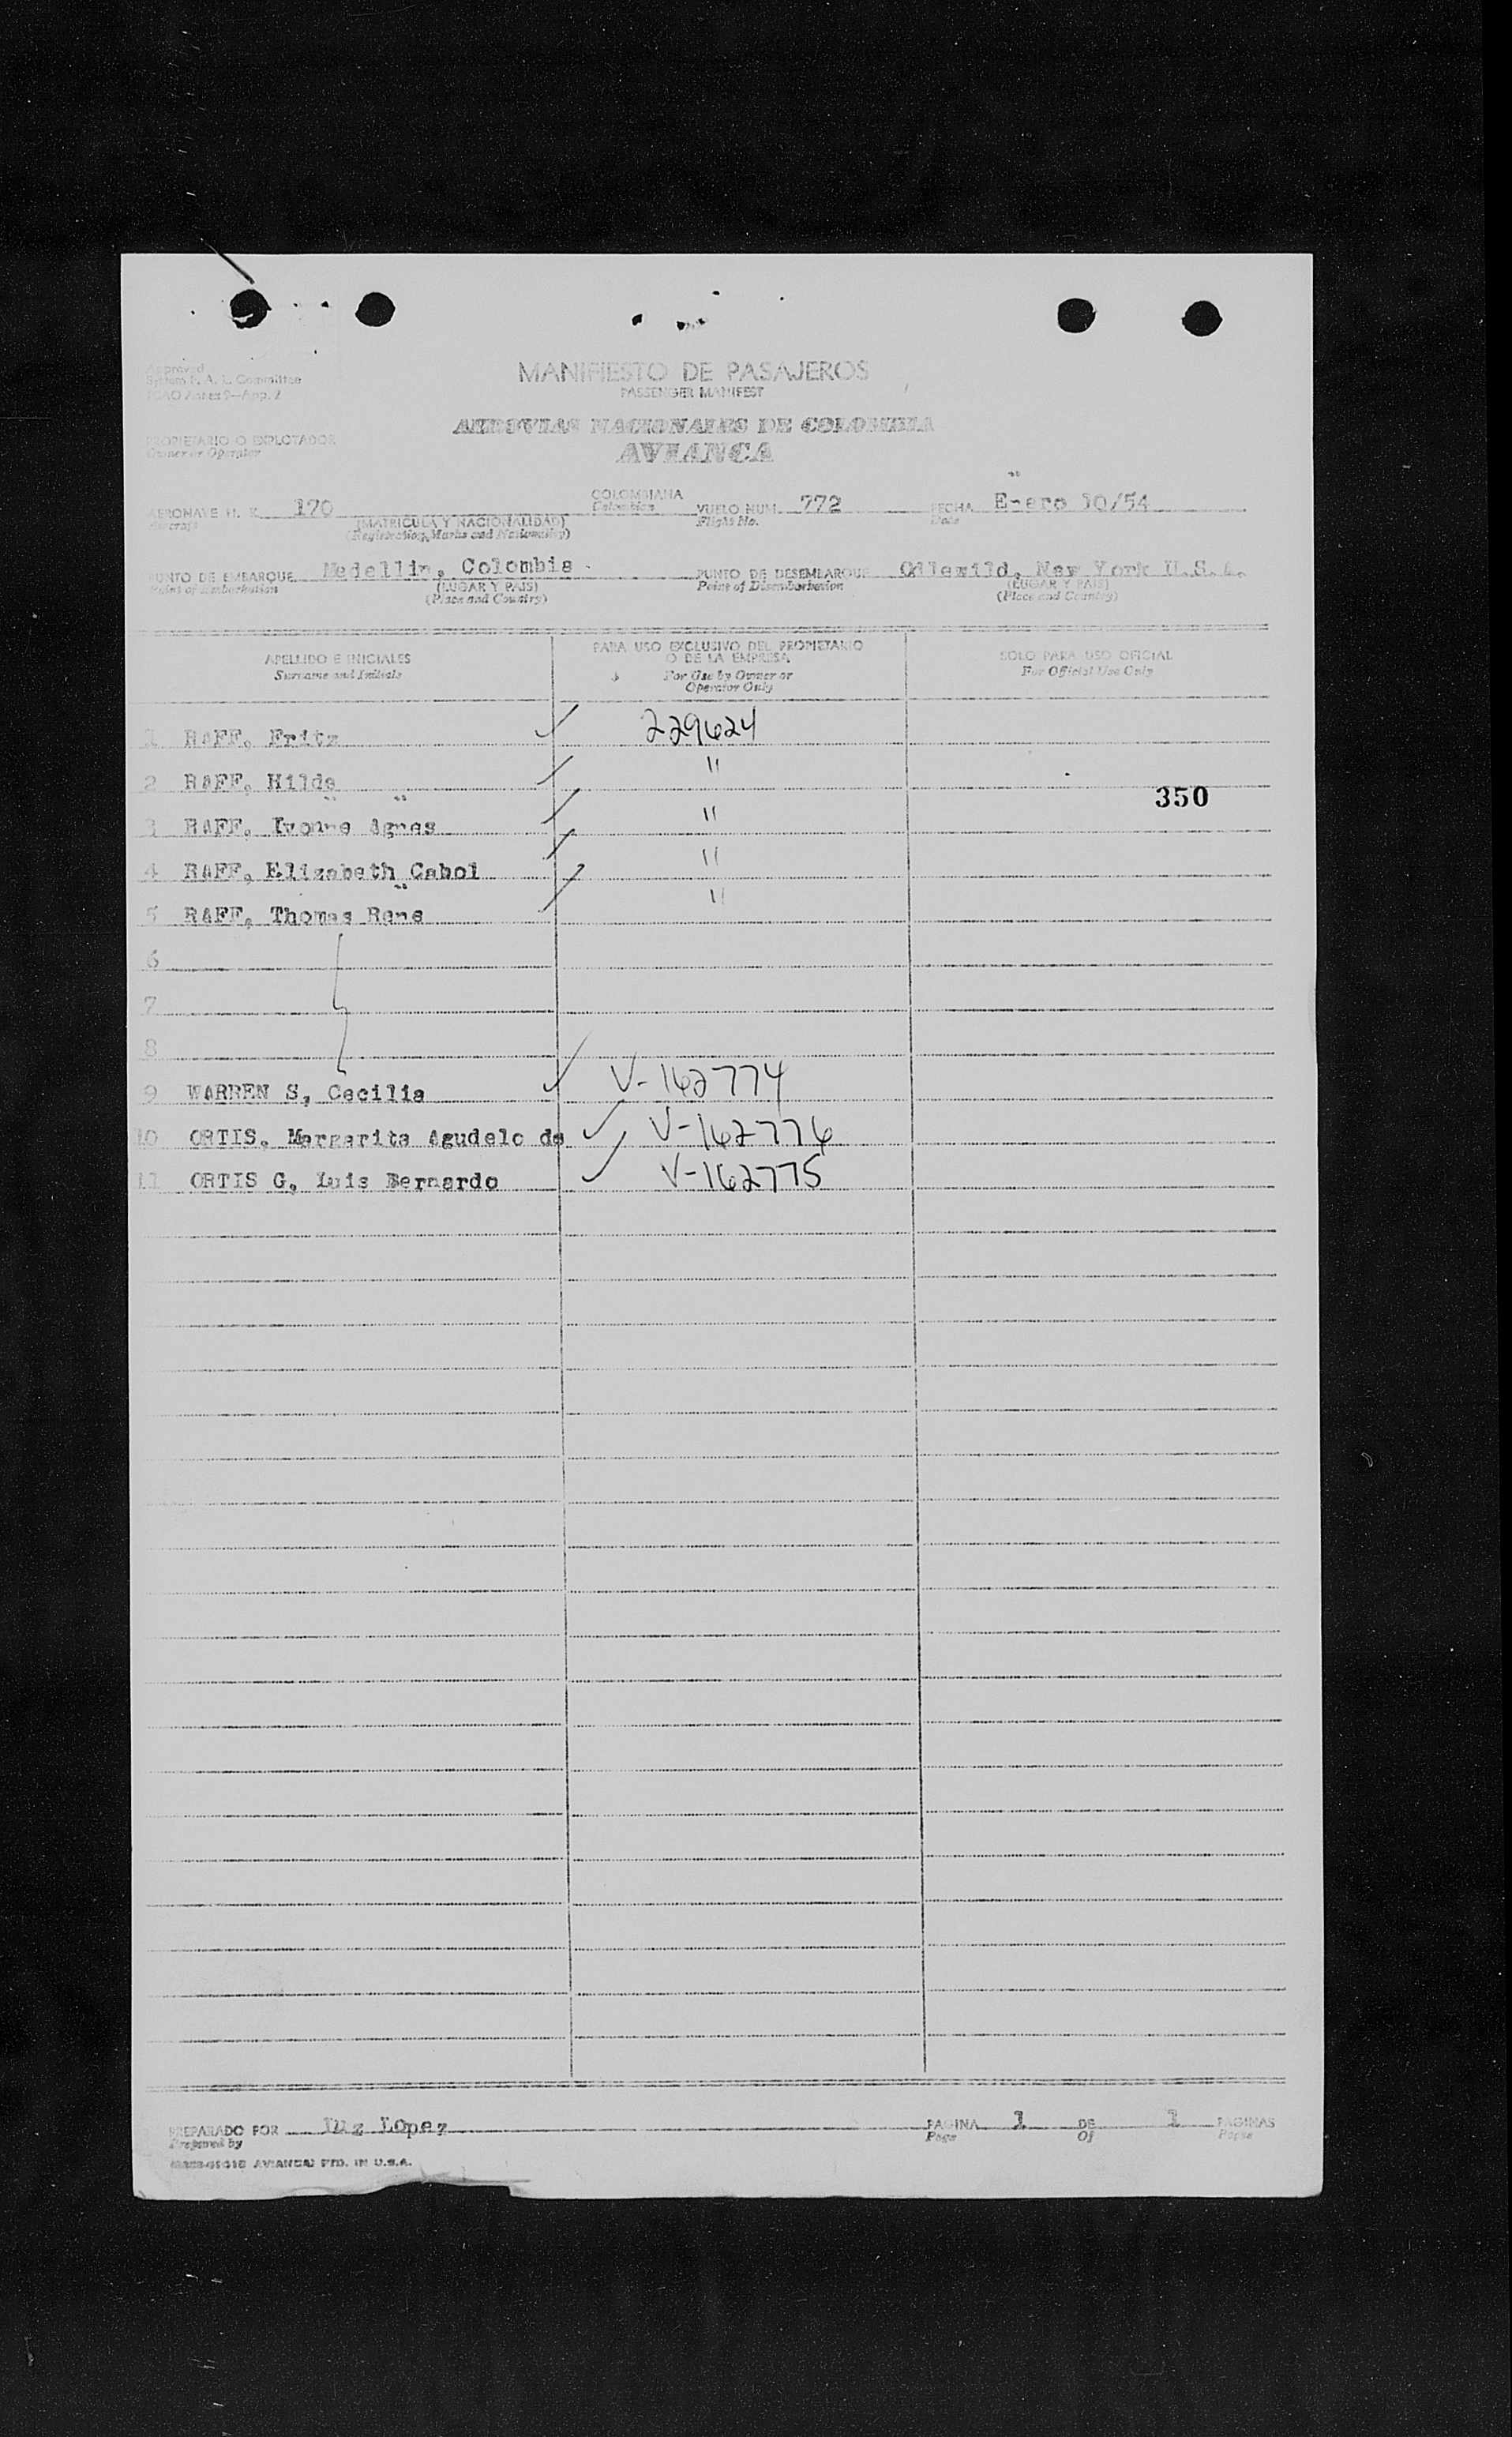 Approved
System F. A. L. Committee
ICAO Annex 9—App. 2
MANIFIESTO DE PASAJEROS
PASSENGER MANIFEST
AEROVIAS NACIONALES DE COLOMBIA
AVIANCA
PROPIETARIO O EXPLOTADOR
Owner or Operator
AERONAVE H. K. 170 COLOMBIANA VUELO NUM. 772 FECHA Enero 10/54
Aircraft (MATRICULA Y NACIONALIDAD) Colombian Flight No. Date
(Registration, Marks and Nationality)
PUNTO DE EMBARQUE Medellin, Colombia PUNTO DE DESEMBARQUE Odlewild, New York U.S.A.
Point of Embarkation (LUGAR Y PAIS) Point of Disembarkation (LUGAR Y PAIS)
(Place and Country) (Place and Country)
APELLIDO E INICIALES PARA USO EXCLUSIVO DEL PROPIETARIO SOLO PARA USO OFICIAL
O DE LA EMPRESA
Surname and Initials For Use by Owner or For Official Use Only
Operator Only
1 RAFF, Fritz 229624
2 RAFF, Hilda "
350
3 RAFF, Ivonne Agnes "
4 RAFF, Elizabeth Cabol "
5 RAFF, Thomas Rene "
6
7
8
9 WARREN S, Cecilia V-162774
10 ORTIS, Margarita Agudelo de V-162776
11 ORTIS G, Luis Bernardo V-162775
PREPARADO POR Luz LOpez PAGINA 1 DE 1 PAGINAS
Prepared by Page Of Pages
AVIANCA: PTD. IN U.S.A.